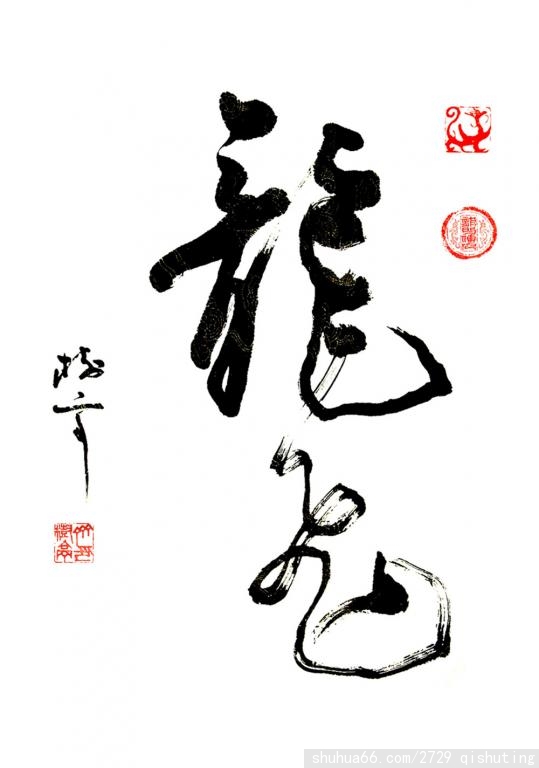 龍飛
樹亭
shuhua66.com/2729 qishuting